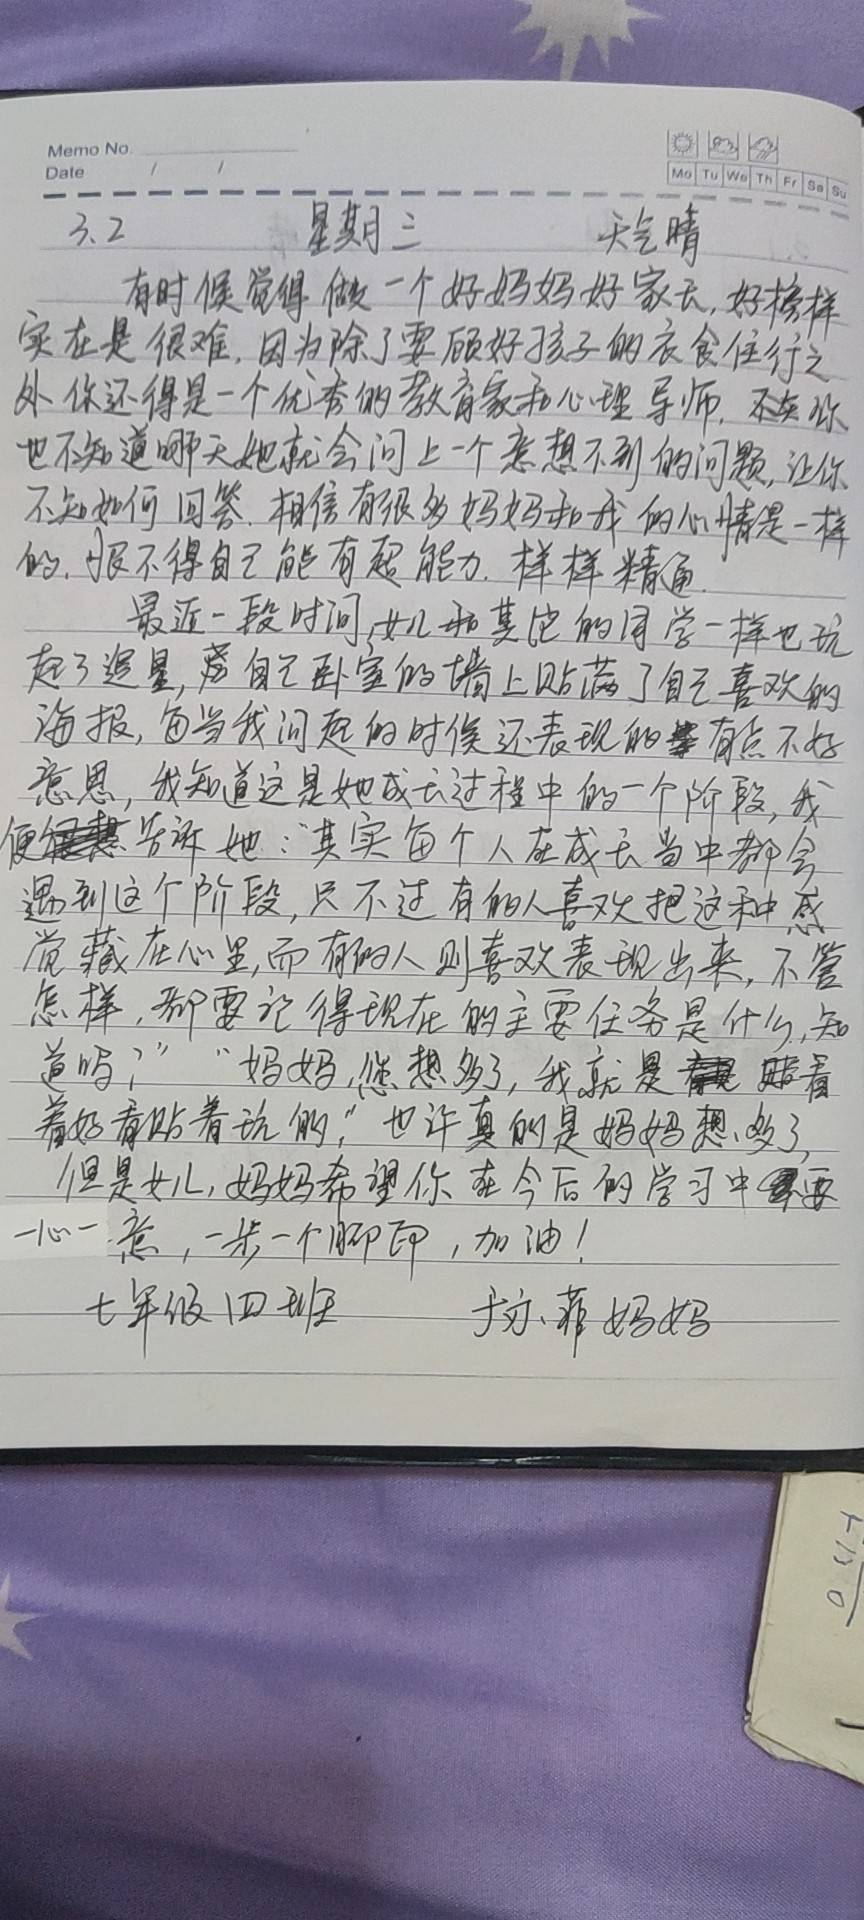 Memo No.
Date / /
Mo Tu We Th Fr Sa Su
3.2 星期三 天气晴
有时候觉得做一个好妈妈好家长,好榜样
实在是很难,因为除了要顾好孩子的衣食住行之
外你还得是一个优秀的教育家和心理导师,不然你
也不知道哪天她就会问上一个意想不到的问题,让你
不知如何回答.相信有很多妈妈和我的心情是一样
的,恨不得自己能有超能力.样样精通.
最近一段时间,女儿和其他的同学一样也玩
起了追星,在自己卧室的墙上贴满了自己喜欢的
海报,每当我问起的时候还表现的有点不好
意思,我知道这是她成长过程中的一个阶段,我
便告诉她:“其实每个人在成长当中都会
遇到这个阶段,只不过有的人喜欢把这种感
觉藏在心里,而有的人则喜欢表现出来,不管
怎样,都要记得现在的主要任务是什么,知
道吗?” “妈妈,您想多了,我就是贴着
着好看贴着玩的,”也许真的是妈妈想多了,
但是女儿,妈妈希望你在今后的学习中要
一心一意,一步一个脚印,加油!
七年级四班 菲妈妈